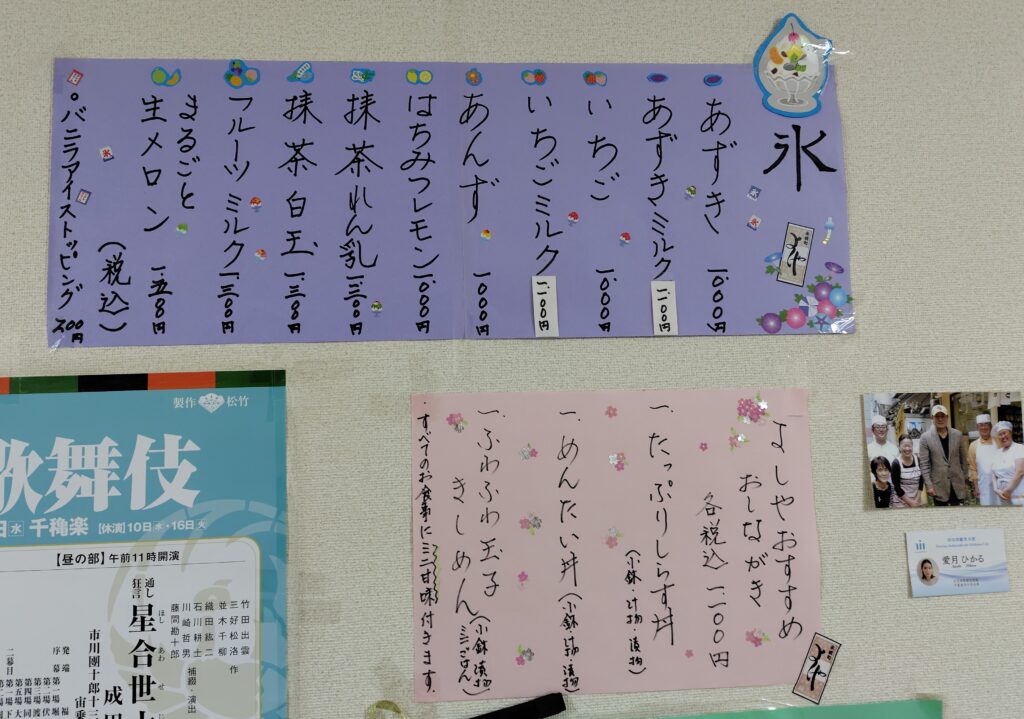 氷
あずき 1,000円
あずきミルク 1,100円
いちご 1,000円
いちごミルク 1,100円
あんず 1,000円
はちみつレモン 1,000円
抹茶れん乳 1,300円
抹茶白玉 1,300円
フルーツミルク 1,300円
まるごと
生メロン 1,500円
(税込)
。バニラアイストッピング 200円
よしやおすすめ
おしながき
各税込 1,100円
一、たっぷりしらす丼
(小鉢・汁物・漬物)
一、めんたい丼 (小鉢・汁物・漬物)
一、ふわふわ玉子
きしめん (小鉢・漬物
ミニごはん)
・すべてのお食事にミニ甘味付きます。
製作 松竹
歌舞伎
日 水 千穐楽 【休演】10日 水・16日 火
【昼の部】午前11時開演
竹田出雲
三好松洛 作
並木千柳
織田紘二
石川耕士 補綴・演出
川崎哲男
藤間勘十郎
通し
狂言 星合世
ほし あわ せ
成田
市川團十郎十三
宙乗
発端
序幕 第一場
第二場
第三場
第四場
第五場
二幕目 第一場
第二場
愛月 ひかる